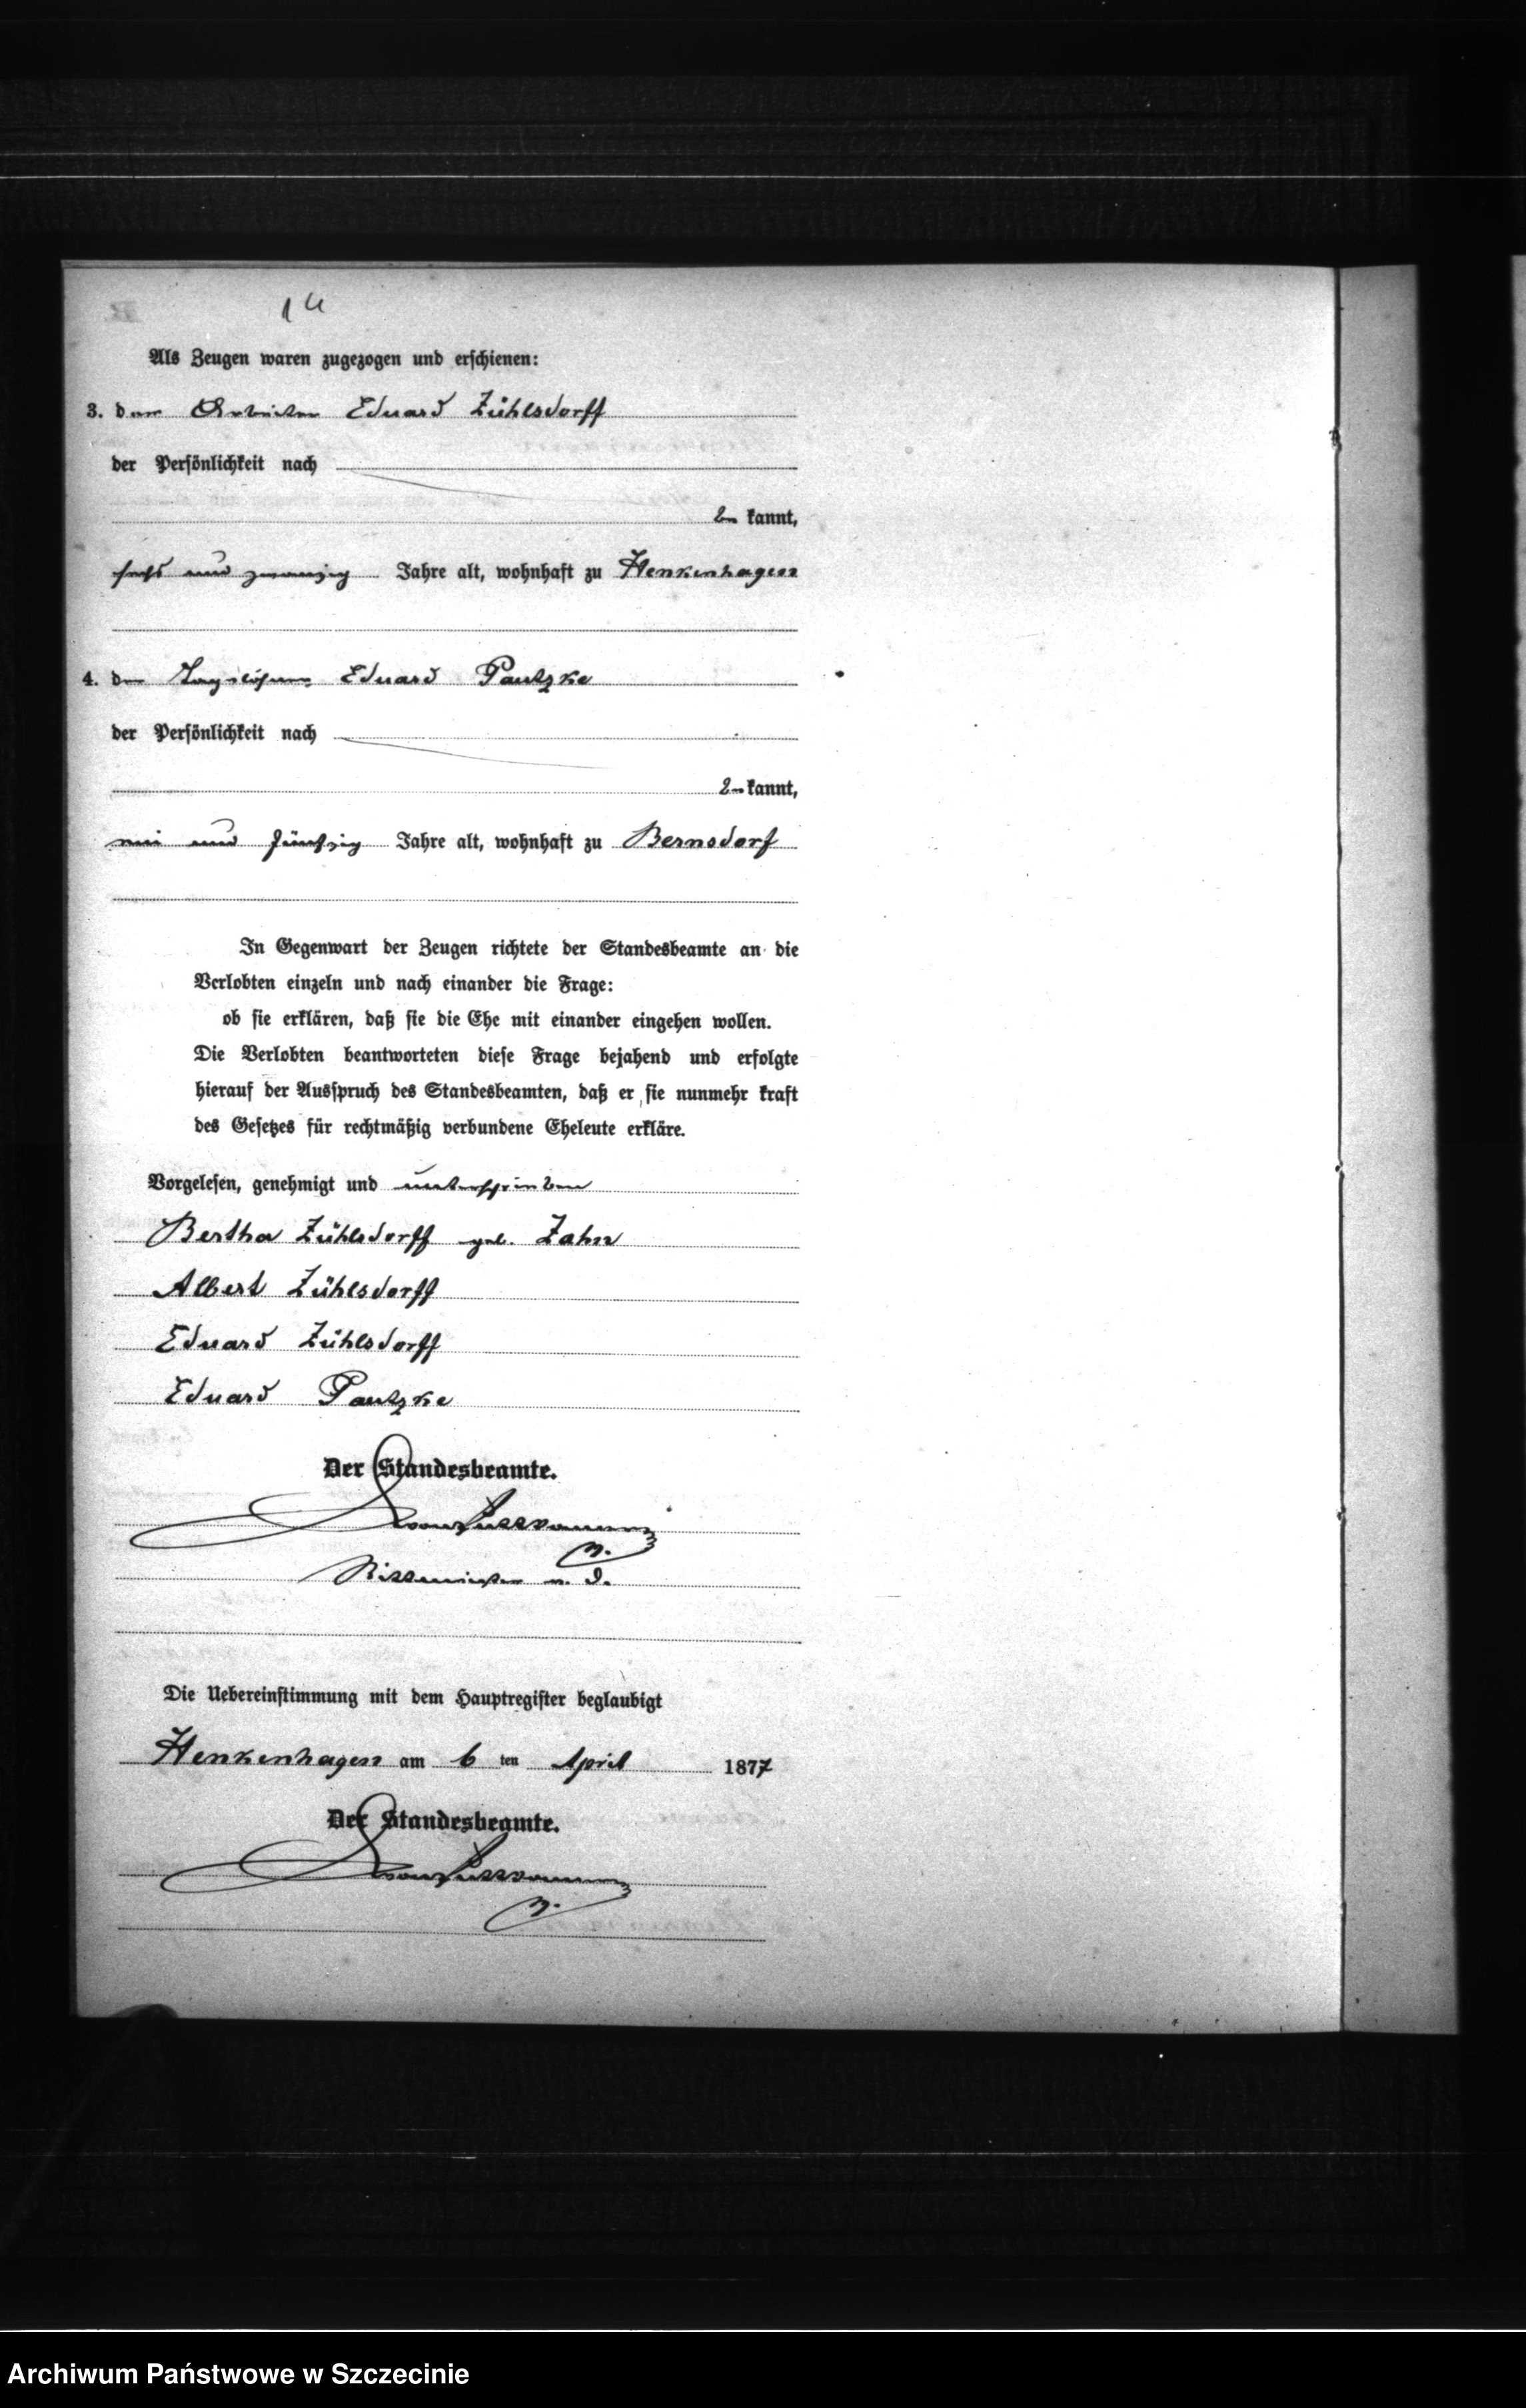 14
Als Zeugen waren zugezogen und erschienen:
3. der Arbeiter Eduard Zühlsdorff
der Persönlichkeit nach
be kannt,
sechs und zwanzig Jahre alt, wohnhaft zu Henkenhagen
4. der Tagelöhner Eduard Pautzke
der Persönlichkeit nach
be kannt,
und fünfzig Jahre alt, wohnhaft zu Bernsdorf
In Gegenwart der Zeugen richtete der Standesbeamte an die
Verlobten einzeln und nach einander die Frage:
ob sie erklären, daß sie die Ehe mit einander eingehen wollen.
Die Verlobten beantworteten diese Frage bejahend und erfolgte
hierauf der Ausspruch des Standesbeamten, daß er sie nunmehr kraft
des Gesetzes für rechtmäßig verbundene Eheleute erkläre.
Vorgelesen, genehmigt und unterschrieben
Bertha Zühlsdorff geb. Zahn
Albert Zühlsdorff
Eduard Zühlsdorff
Eduard Pautzke
Der Standesbeamte.
Rittmeister a. D.
Die Uebereinstimmung mit dem Hauptregister beglaubigt
Henkenhagen am 6 ten April 1877
Der Standesbeamte.
Archiwum Państwowe w Szczecinie